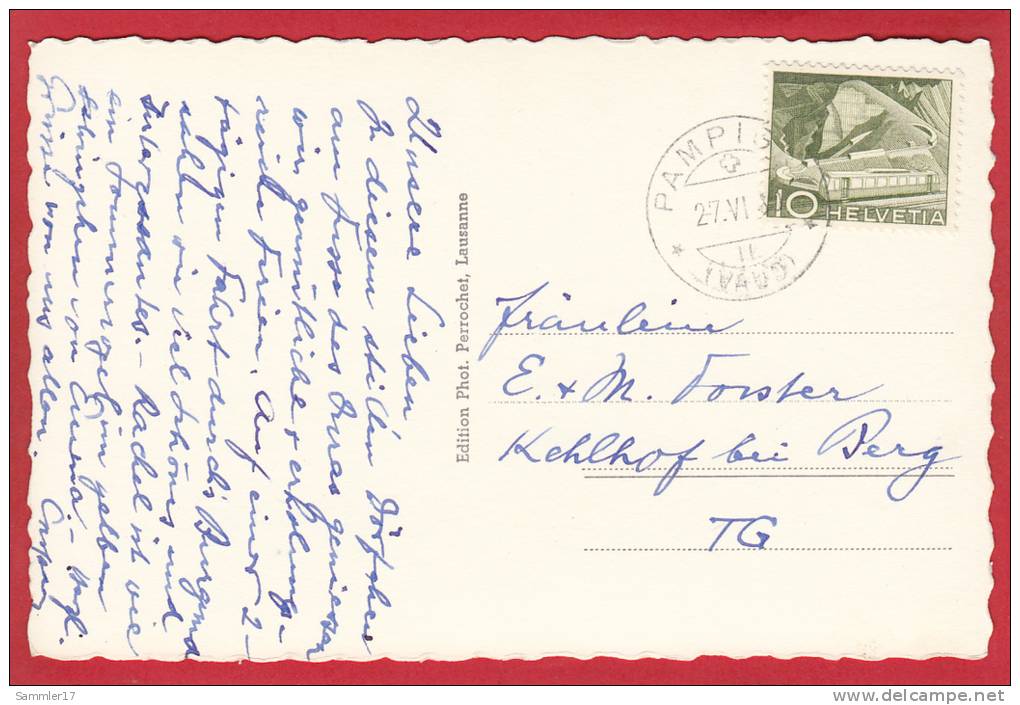 Unsere Lieben
In diesem stillen Dörfchen
am Fusse des Juras geniessen
wir gemütliche & erholungs-
reiche Ferien. Auf einer 2-
tägigen Fahrt durch's Burgund
sahen wir viel Schönes und
Interessantes. – Rachel ist wie
ein Sommervogel im gelben
von – Hzl.
Grüsse von uns allen.
Edition Phot. Perrochet, Lausanne
PAMPIG
27.VI
(VAUD)
10 HELVETIA
Fräulein
E. & M. Forster
Kehlhof bei Berg
TG
Sammler17
delcampe.net